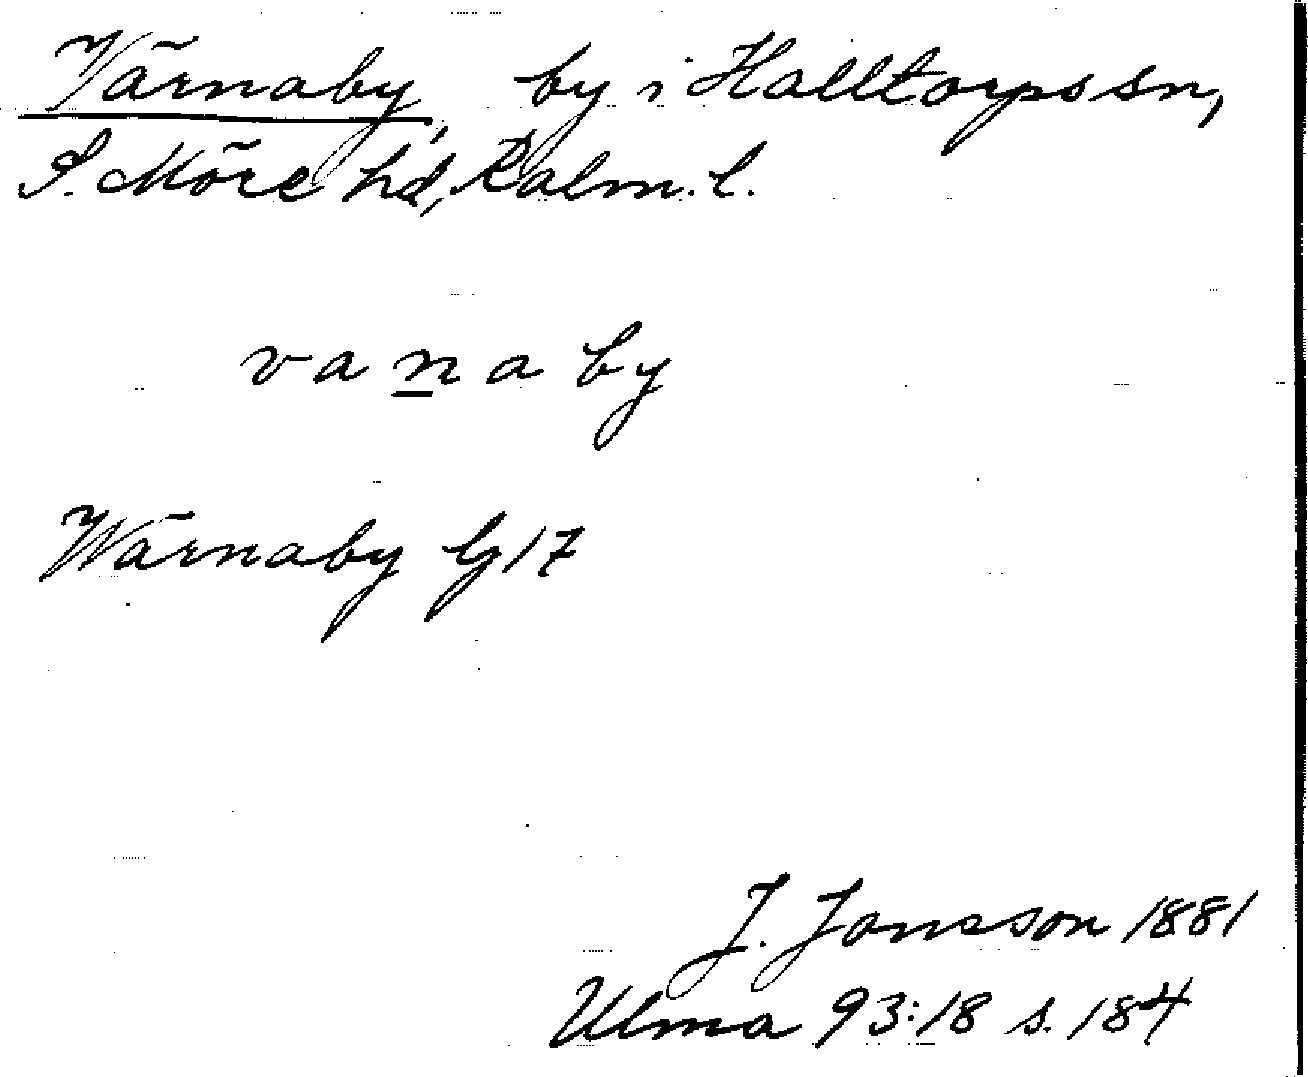 Värnaby, by i Halltorps sn,
S. Möre hd, Kalm. l.
vanaby
Wärnaby G 17
J. Jonsson 1881
Ulma 93:18 s. 184